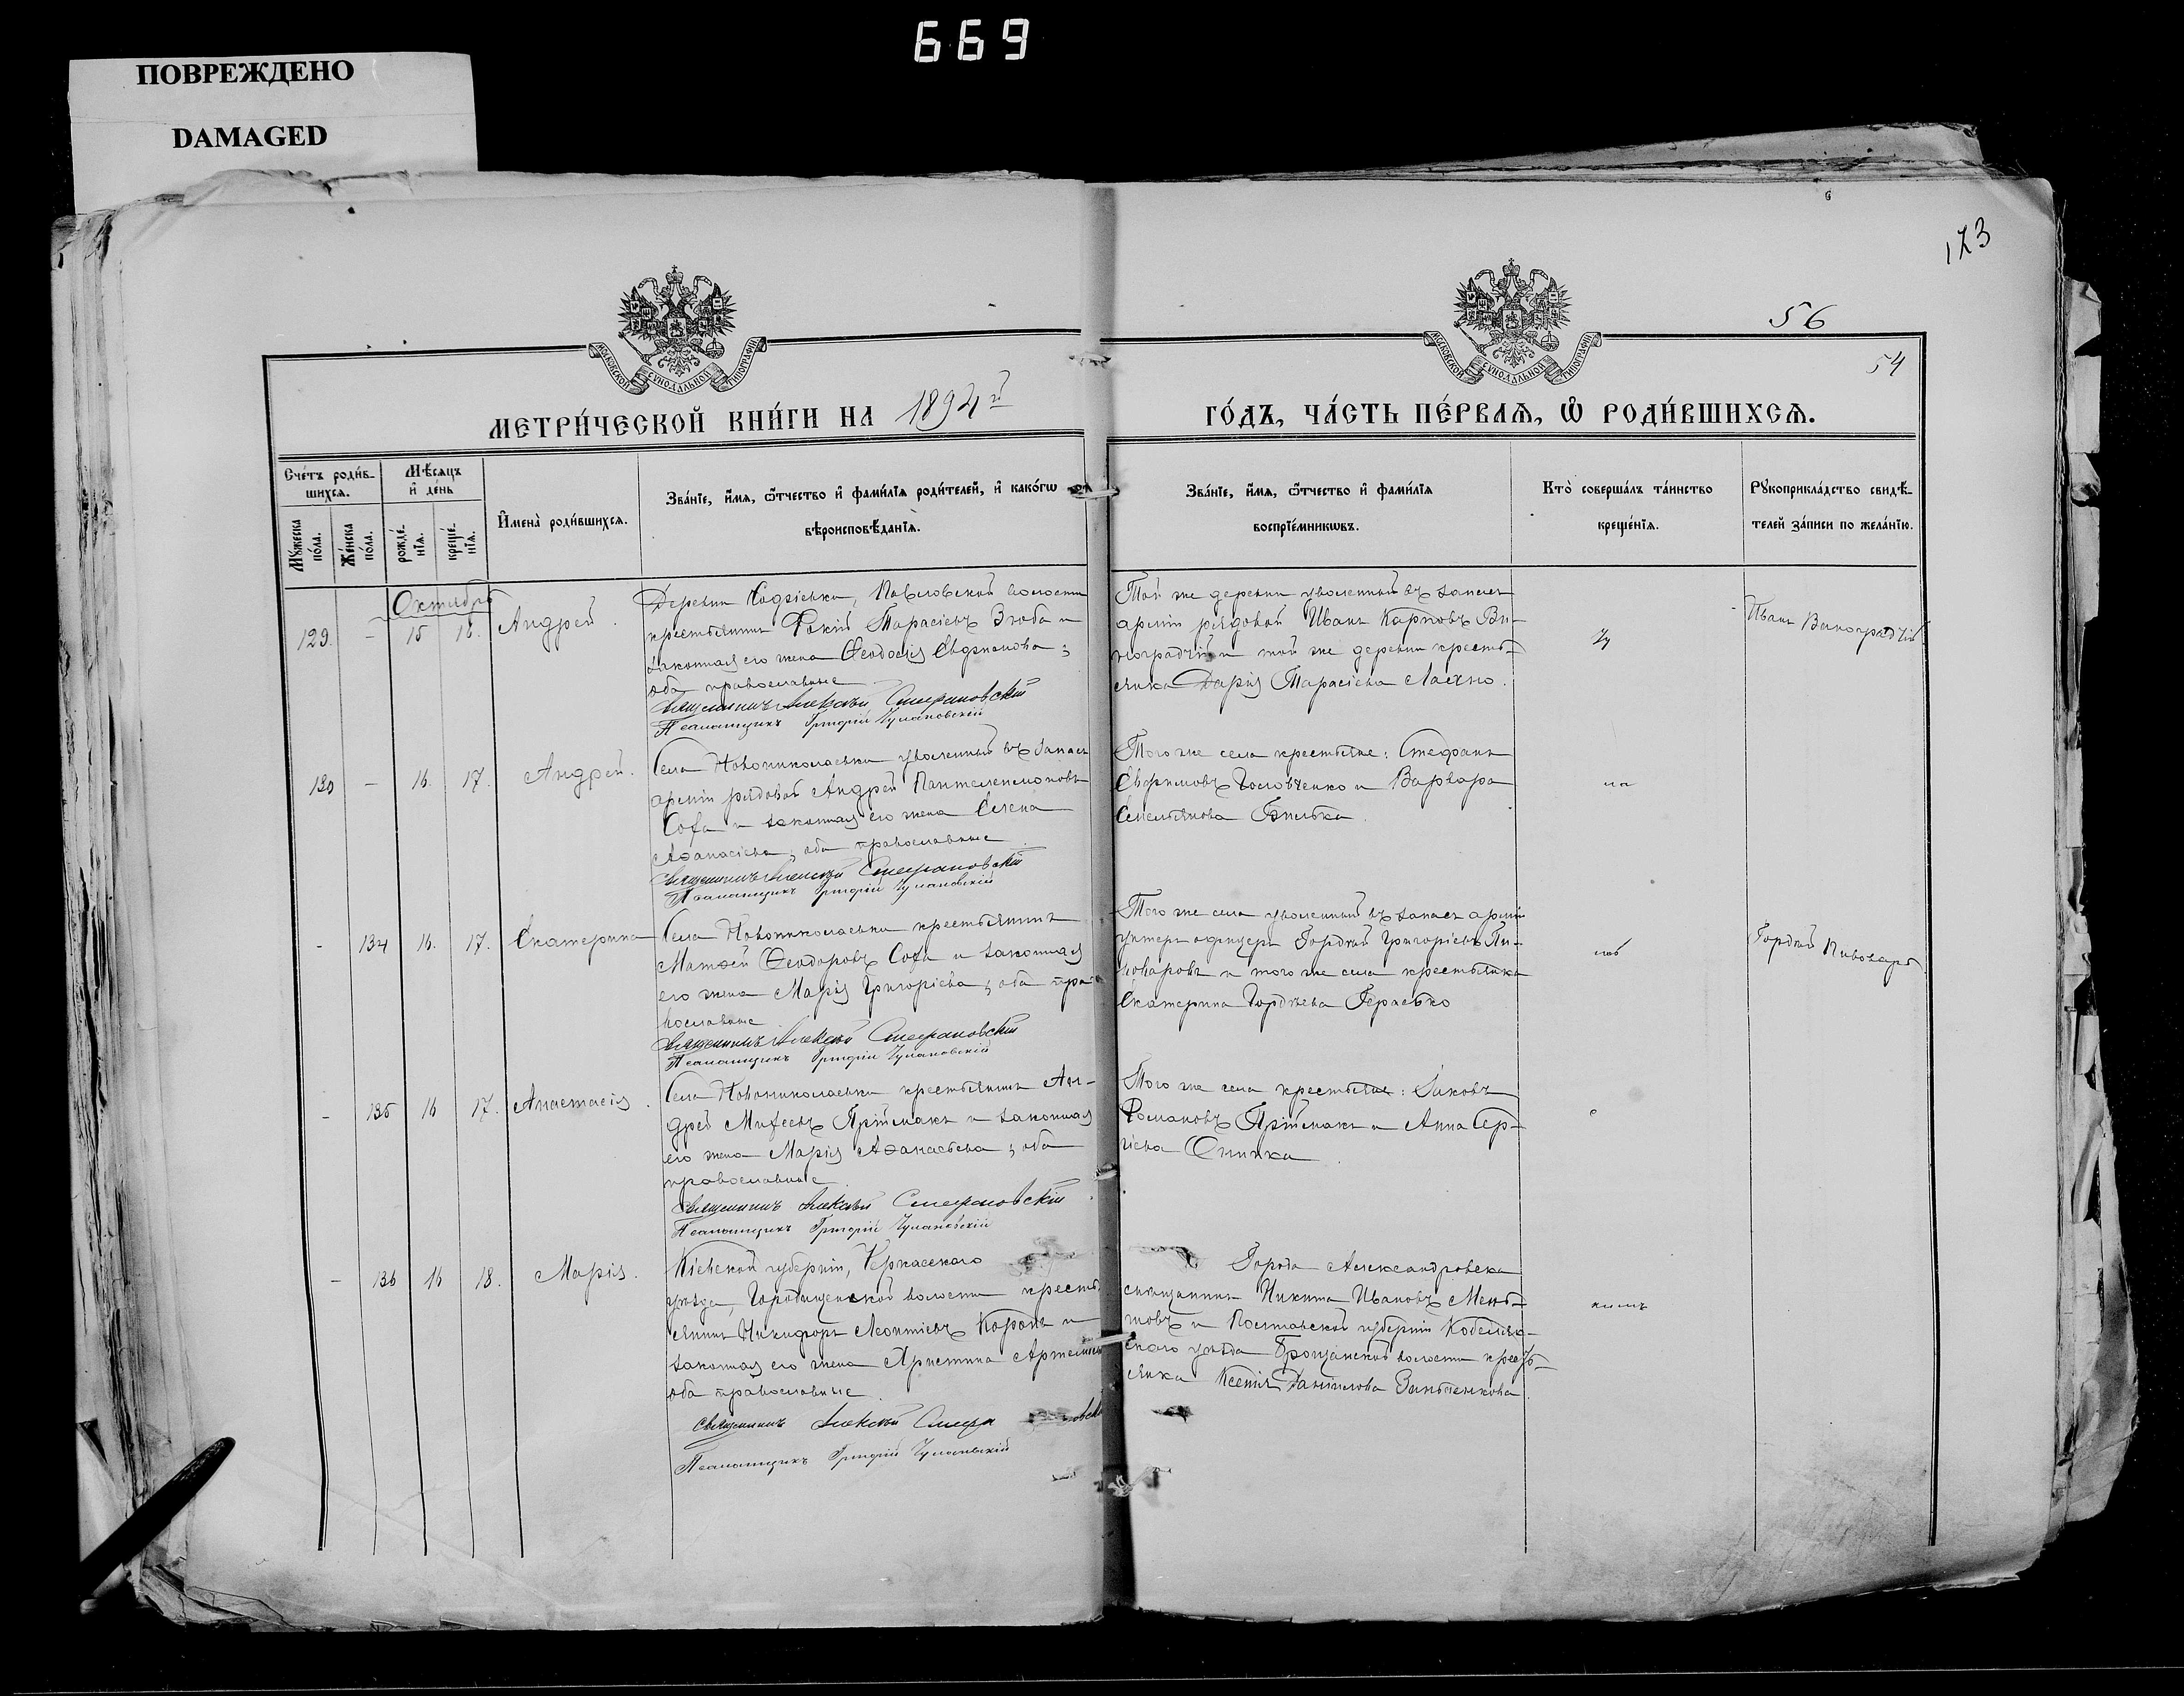 669
ПОВРЕЖДЕНО
DAMAGED
173
56
54
МОСКОВСКОЙ СѴНОДАЛЬНОЙ ТИПОГРАФІИ
МОСКОВСКОЙ СѴНОДАЛЬНОЙ ТИПОГРАФІИ
МЕТРИ́ЧЕСКОЙ КНИ́ГИ НА 1894й
ГО́ДЪ, ЧА́СТЬ ПЕ́РВАѦ, Ѡ҆ РОДИ́ВШИХСѦ.
Сче́тъ роди́в-
шихсѧ.
Мꙋ́жеска по́ла.
Же́нска по́ла.
Мѣ́сѧцъ
и҆ де́нь
рожде́-
нїѧ.
креще́-
нїѧ.
И҆мена̀ роди́вшихсѧ.
Зва́нїе, и҆́мѧ, ѻ҆́тчество и҆ фами́лїѧ роди́телей, и҆ како́гѡ
вѣроисповѣ́данїѧ.
Зва́нїе, и҆́мѧ, ѻ҆́тчество и҆ фами́лїѧ
воспрїе́мникѡвъ.
Кто̀ соверша́лъ та́инство
креще́нїѧ.
Рꙋкоприкла́дство свидѣ́-
телей за́писи по жела́нїю.
Октябрь
129 - 15 16. Андрей.
Деревни Софіевки, Павловской волости
крестьянинъ Фокій Тарасіевъ Згоба и
законная его жена Ѳеодосія Евфимова;
оба православные
Священникъ Алексѣй Стефановскій
Псаломщикъ Григорій Чулановскій
Той же деревни уволенный въ запасъ
арміи рядовой Иванъ Карповъ Ви-
ноградчій и той же деревни кресть-
янка Дарія Тарасіева Лахно.
Иванъ Виноградчій
130 - 16. 17. Андрей.
Села Новониколаевки уволенный въ запасъ
арміи рядовой Андрей Пантелеимоновъ
Софа и законная его жена Елена
Аѳанасіева; оба православные
Священникъ Алексѣй Стефановскій
Псаломщикъ Григорій Чулановскій
Того же села крестьяне: Стефанъ
Евфимовъ Головченко и Варвара
Емельянова Билька.
- 134 16. 17. Екатерина
Села Новониколаевки крестьянинъ
Матѳей Ѳеодоровъ Софа и законная
его жена Марія Григоріева; оба пра-
вославные
Священникъ Алексѣй Стефановскій
Псаломщикъ Григорій Чулановскій
Того же села уволенный въ запасъ арміи
унтеръ офицеръ Гордѣй Григоріевъ Пи-
воваровъ и того же села крестьянка
Екатерина Гордѣева Герасько
Гордѣй Пивоваръ
- 135 16 17. Анастасія.
Села Новониколаевки крестьянинъ Ан-
дрей Михеевъ Пріймакъ и законная
его жена Марія Аѳанасьева; оба
православные.
Священникъ Алексѣй Стефановскій
Псаломщикъ Григорій Чулановскій
Того же села крестьяне: Іаковъ
Романовъ Пріймакъ и Анна Сер-
гіева
- 136 16 18. Марія.
Кіевской губерніи, Черкасскаго
уѣзда, Городищенской волости кресть-
янинъ Никифоръ Леонтіевъ Король и
законная его жена Христина
оба православные.
Священникъ Алексѣй
Псаломщикъ Григорій Чулановскій
Города Александровска
мѣщанинъ Никита Ивановъ
и Полтавской губерніи Кобеляк-
скаго уѣзда волости кресть-
янка Ксенія Даниилова Зинченкова.